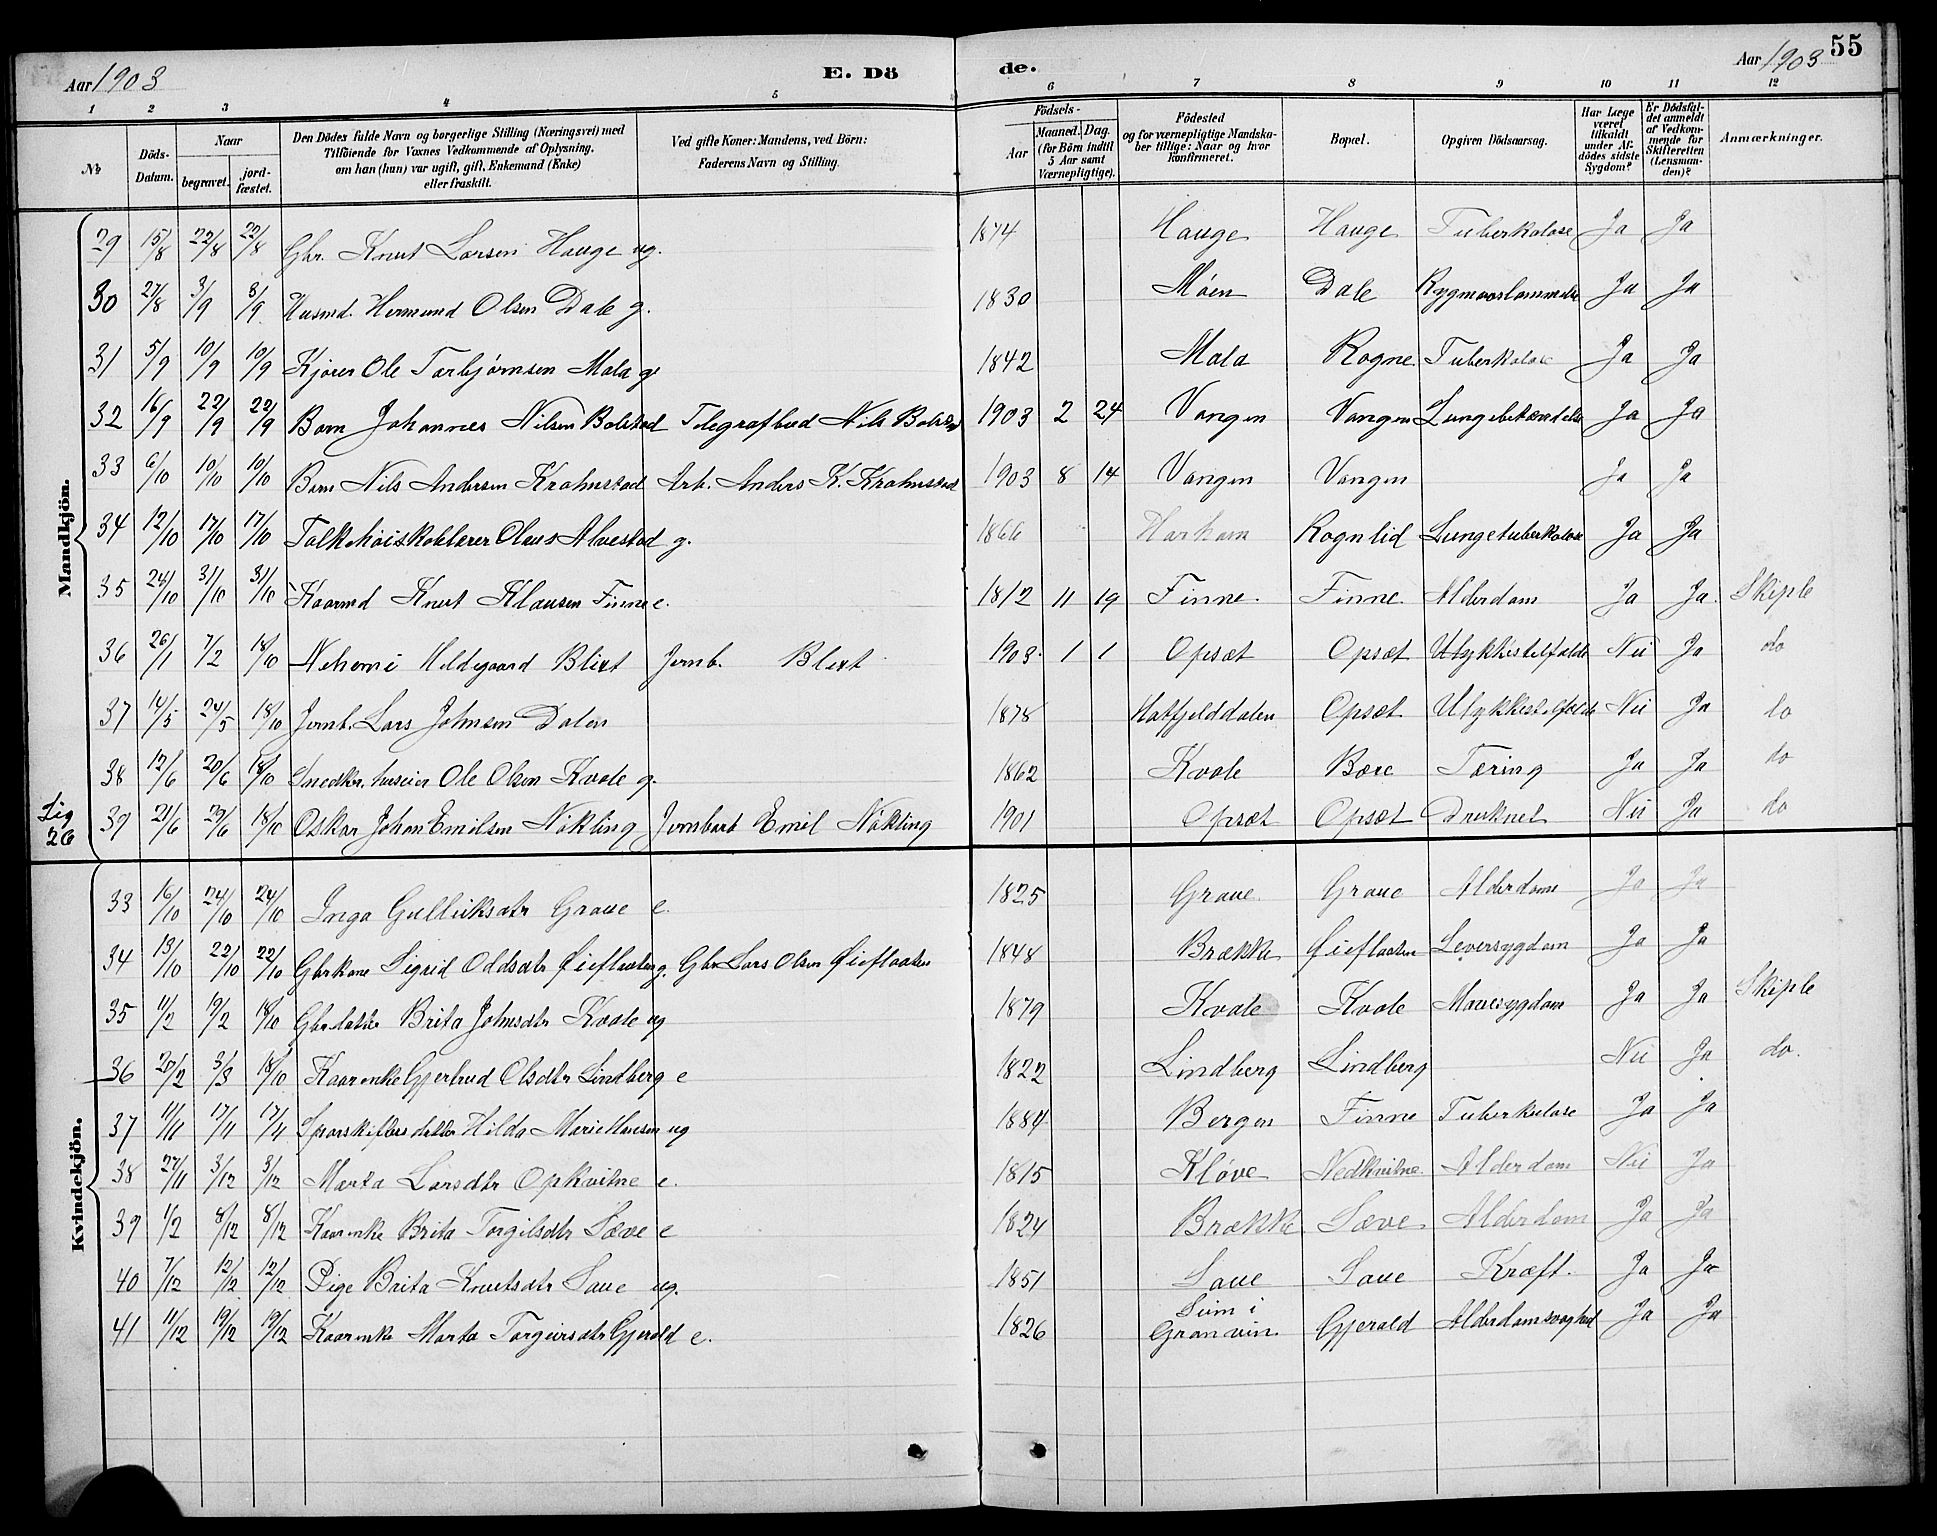 Aar 1903 E. Dö
de. Aar 1903 55
1 2 3 4 5 6 7 8 9 10 11 12
№ Döds-Datum. Naar begravet. jord-fæstet. Den Dödes fulde Navn og borgerlige Stilling (Næringsvei) med Tilföiende for Voxnes Vedkommende af Oplysning, om han (hun) var ugift, gift, Enkemand (Enke) eller fraskilt. Ved gifte Koner: Mandens, ved Börn: Faderens Navn og Stilling. Födsels- Aar Maaned. Dag. (for Börn indtil 5 Aar samt Værnepligtige). Födested og for værnepligtige Mandska-ber tillige: Naar og hvor konfirmeret. Bopæl. Opgiven Dödsaarsag. Har Læge været tilkaldt under Af-dödes sidste Sygdom? Er Dödsfal-det anmeldt af Vedkom-mende for Skifteretten (Lensman-den)? Anmærkninger.
Mandkjön.
29 15/8 22/8 22/8 Gbr. Knut Larsen Hauge ug. 1874 Hauge Hauge Tuberkulose Ja Ja
30 27/8 3/9 3/9 Husmd. Hermund Olsen Dale g. 1830 Möen Dale Ja Ja
31 5/9 10/9 10/9 Kjörer Ole Torbjörnsen Mala g 1842 Mala Rogne Tuberkulose Ja Ja
32 16/9 22/9 22/9 Barn Johannes Nilsen Bolstad Telegrafbud Nils Bolstad 1903 2 24 Vangen Vangen Lungebetændelse Ja Ja
33 6/10 10/10 10/10 Barn Nils Andersen Krohnstad Arb. Anders K. Krohnstad 1903 8 14 Vangen Vangen Ja Ja
34 12/10 17/10 17/10 Folkehöiskolelærer Olaus Alvestad g. 1866 Rognlid Lungetuberkulose Ja Ja
35 24/10 31/10 31/10 Kaarmd Knut Klausen Finne e. 1812 11 19 Finne. Finne Alderdom Ja Ja. Skiple
36 26/1 7/2 18/10 Nehemi Hildegaard Blixt Jernb. Blixt 1903. 1 1 Opsæt Opsæt Ulykkestilfælde Nei Ja do
37 14/5 24/5 18/10 Jernb. Lars Johnsen Dalen 1878 Hatfjelddalen Opsæt Ulykkestilfælde Nei Ja do
38 12/6 20/6 18/10 Snedker, huseier Ole Olsen Kvale g. 1862 Kvale Bøe Tæring Ja Ja do
Lig 26
39 21/6 29/6 18/10 Oskar Johan Emilsen Nökling Jernbarb Emil Nökling 1901 Opsæt Opsæt Druknet Nei Ja do
Kvindekjön.
33 16/10 24/10 24/10 Inga Gulleiksdtr Graue e. 1825 Graue Graue Alderdom Ja Ja
34 13/10 22/10 22/10 Gbrkone Sigrid Oddsdtr Øieflaaten g. Gbr Lars Olsen Øieflaaten 1848 Brække Øieflaaten Leversygdom Ja Ja
35 11/2 19/2 18/10 Gbrdatter Brita Johnsdtr Kvale ug 1879 Kvale Kvale Mavesygdom Ja Ja Skiple
36 20/2 3/3 18/10 Kaarenke Gjertrud Olsdtr Lindberg e 1822 Lindberg Lindberg Nei Ja do.
37 11/11 17/11 17/11 Hilda Marie Hansen ug 1884 Bergen Finne Tuberkulose Ja Ja
38 27/11 3/12 3/12 Marta Larsdtr Opkvitne e. 1815 Klöve Nedkvitne Alderdom Nei Ja
39 1/2 8/12 8/12 Kaarenke Brita Torgilsdtr Sæve e 1824 Brække Sæve Alderdom Ja Ja
40 7/12 12/12 12/12 Pige Brita Knutsdtr Saue ug. 1851 Saue Saue Kræft. Ja Ja
41 11/12 19/12 19/12 Kaarenke Marta Torgeirsdtr Gjerald e. 1826 Seim i Granvin Gjerald Alderdomssvaghed Ja Ja